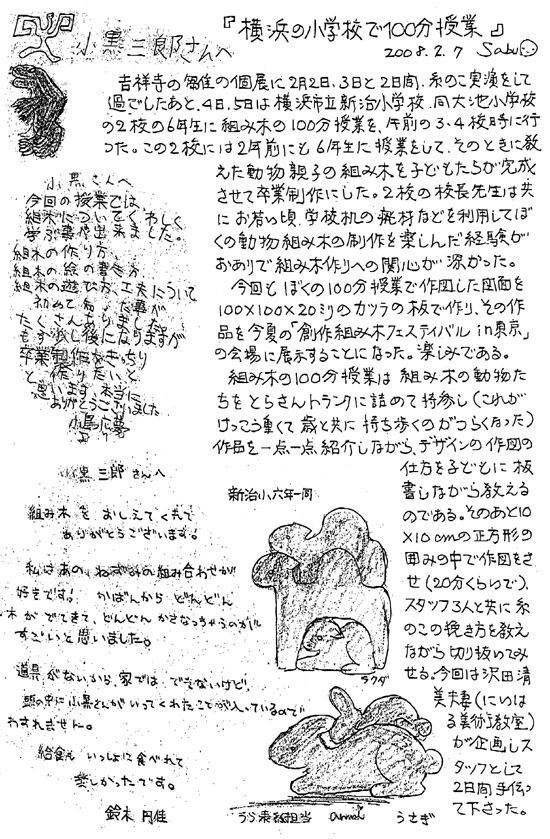 『横浜の小学校で100分授業』
2008.2.7 Sabu
小黒三郎さんへ
吉祥寺の の個展に2月2日、3日と2日間、糸のこ実演をして
過ごしたあと、4日、5日は横浜市立新治小学校、同大池小学校
の2校の6年生に組み木の100分授業を、午前の3・4校時に行
った。この2校には2年前にも6年生に授業をして、そのときに教
えた動物親子の組み木を子どもたちが完成
させて卒業制作にした。2校の校長先生は共
にお若い頃、学校机の廃材などを利用してぼ
くの動物組み木の制作を楽しんだ経験が
おありで組み木作りへの関心が深かった。
今回とぼくの100分授業で作図した図面を
100×100×20ミリのカツラの板で作り、その作
品を今夏の「創作組み木フェスティバル in東京」
の会場に展示することになった。楽しみである。
組み木の100分授業は組み木の動物た
ちをとらさんトランクに詰めて持参し(これが
けっこう重くて歳と共に持ち歩くのがつらくなった)
作品を一点一点紹介しながら、デザインの作図の
仕方を子どもに板
書しながら教える
のである。そのあと10
×10cmの正方形の
囲みの中で作図をさ
せ(20分くらいで)、
スタッフ3人と共に糸
のこの挽き方を教え
ながら切り抜いてみ
せる。今回は沢田清
美夫妻(にいはる
美術教室)
が企画しス
タッフとして
2日間、手伝っ
て下さった。
小黒さんへ
今回の授業では、
組木についてくわしく
学ぶ事が出来ました。
組木の作り方、
組木の絵の書き方、
組木の遊び方、工夫について
初めて知った事が
たくさんありました。
もう少し後になりますが
卒業制作がきっちり
と作りたいと
思います。本当に
ありがとうございました
小黒三郎さんへ
組み木をおしえてくれて
ありがとうございます。
私はあのねずみの組み合わせが
好きです。かばんからどんどん
木がでてきて、どんどんかさなっちゃうのが
すごいと思いました。
道具がないから、家ではできないけど、
頭の中に小黒さんがいってくれたことが入っているので
わすれません。
給食もいっしょに食べれて
楽しかったです。
鈴木 円佳
新治小六年一同
ラクダ
うさぎ